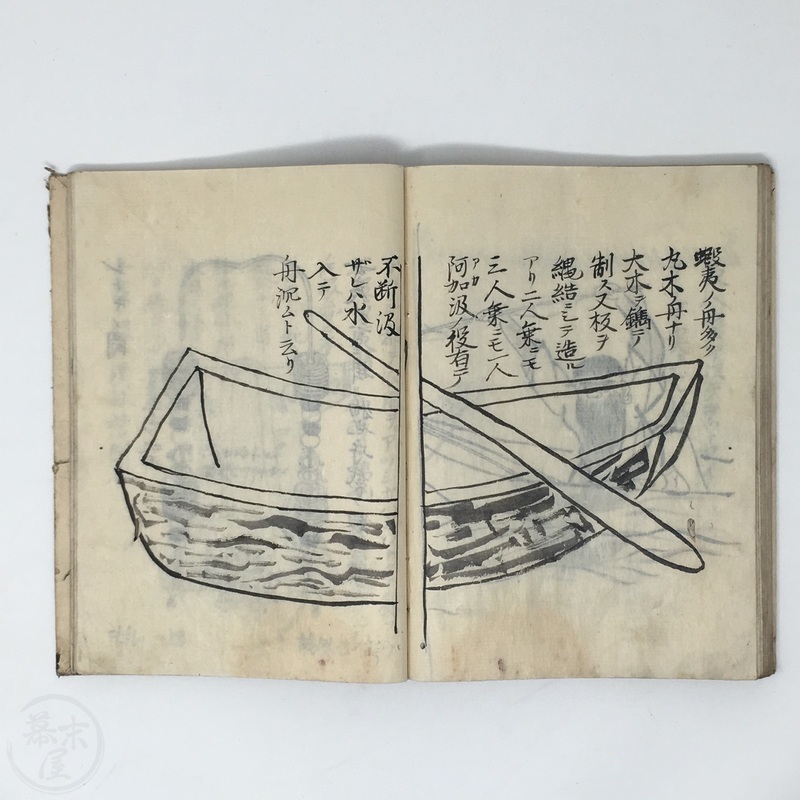 蝦夷ノ舟多ク
丸木舟ナリ
大木ヲ鐫テ
制ス又板ヲ
縄結ニシテ造ル
アリ二人乗ニモ
三人乗ニモ一人
阿加汲ノ役有テ
アカ
不断汲
ザレハ水
入テ
舟沉ムト云リ
幕末屋